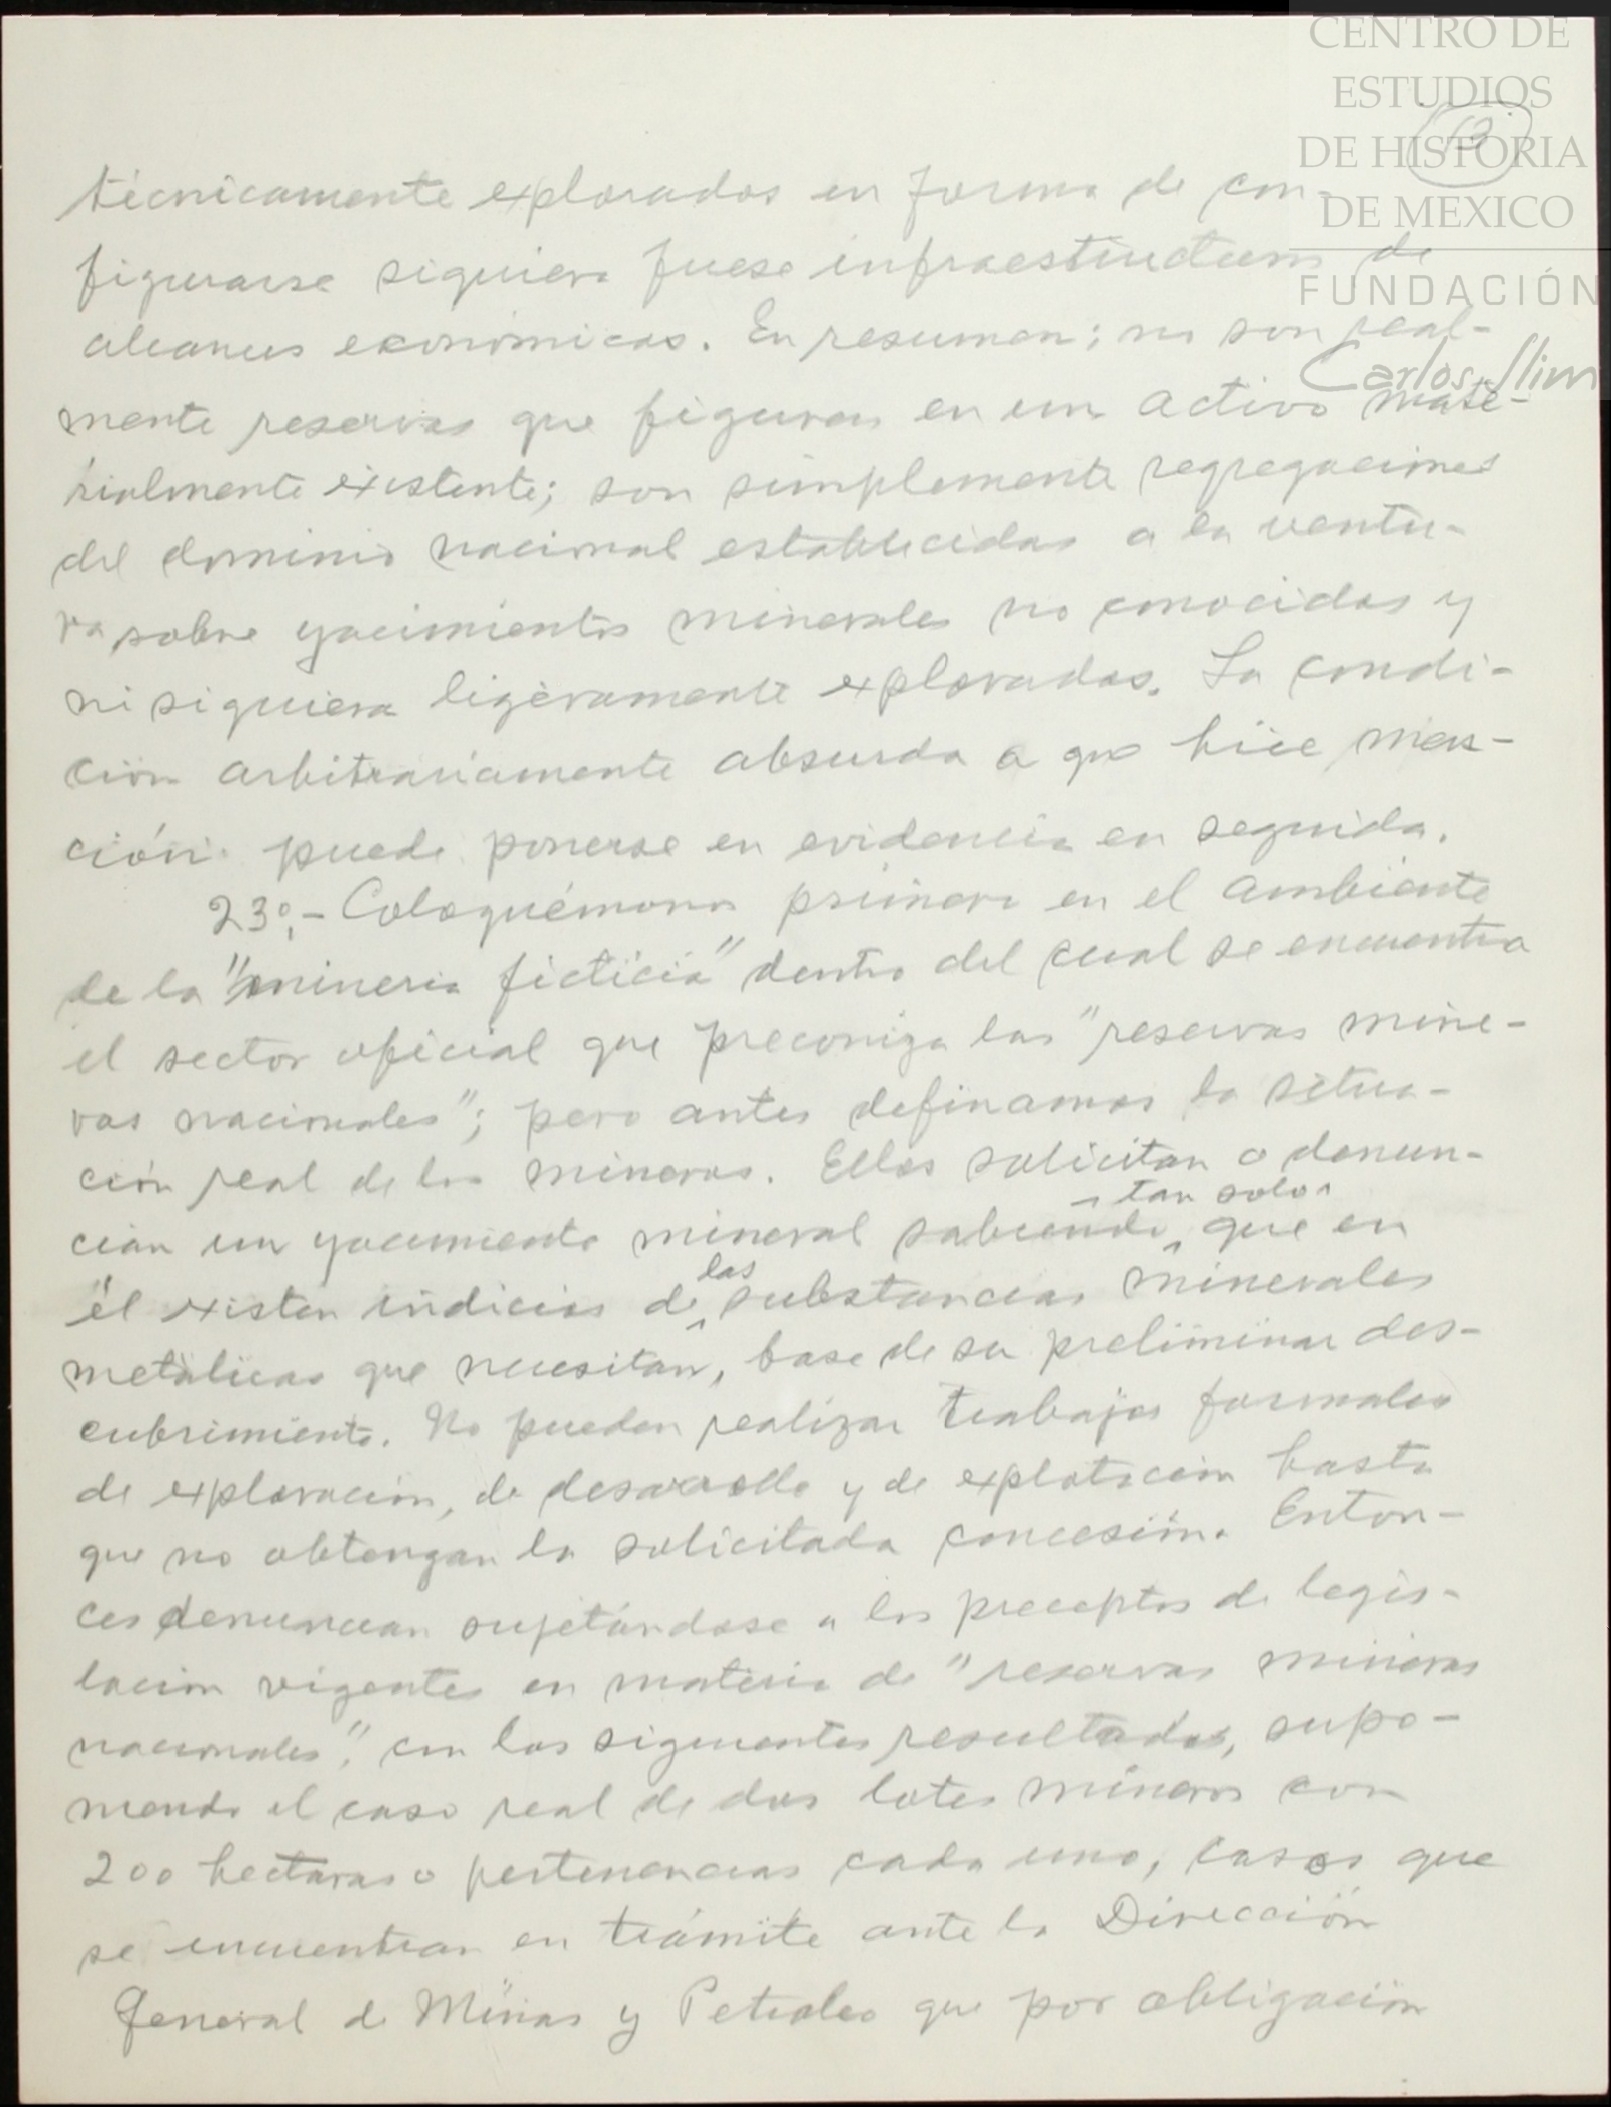 CENTRO DE
ESTUDIOS
DE HISTORIA
DE MEXICO
FUNDACIÓN
Carlos Slim
13
técnicamente explorados en forma de con-
figurarse siquiera fuese infraestructura de
alcances económicos. En resumen; no son real-
mente reservas que figuran en un activo mate-
rialmente existente; son simplemente segregaciones
del dominio nacional establecidas a la ventu-
ra sobre yacimientos minerales no conocidos y
ni siquiera ligeramente explorados. La condi-
ción arbitrariamente absurda a que hice men-
ción puede ponerse en evidencia en seguida.
23º.- Coloquémonos primero en el ambiente
de la "mineria ficticia" dentro del cual se encuentra
el sector oficial que preconiza las "reservas mine-
ras nacionales"; pero antes definamos la situa-
ción real de los mineros. Ellos solicitan o denun-
tan solo
cian un yacimiento mineral sabiendo que en
las
él existen indicios de substancias minerales
metálicas que necesitan, base de su preliminar des-
cubrimiento. No pueden realizar trabajos formales
de exploración, de desarrollo y de explotación hasta
que no obtengan la solicitada concesión. Enton-
ces denuncian sujetándose a los preceptos de legis-
lación vigentes en materia de "reservas mineras
nacionales", con los siguientes resultados, supo-
niendo el caso real de dos lotes mineros con
200 hectáras o pertenencias cada uno, casos que
se encuentran en trámite ante la Dirección
General de Minas y Petroleo que por obligación